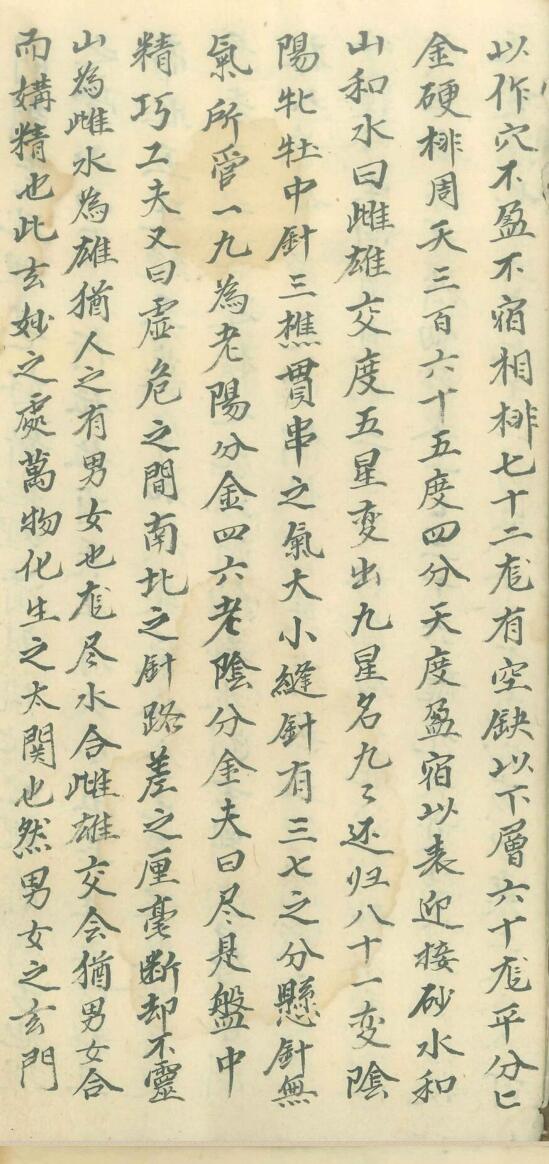 以作穴不盈不宿相排七十二龙有空缺以下層六十龙平分匕
金硬排周天三百六十五度四分天度盈宿以表迎接砂水和
山和水曰雌雄交度五星变出九星名九〻还归八十一变陰
陽牝牡中針三樵貫串之氣大小縫針有三七之分懸針無
氣所管一九為老陽分金四六老陰分金夫曰尽是盤中
精巧工夫又曰虛危之間南北之針路差之厘毫断却不靈
山為雌水為雄猶人之有男女也龙尽水合雌雄交会猶男女合
而媾精也此玄妙之處萬物化生之太関也然男女之玄門